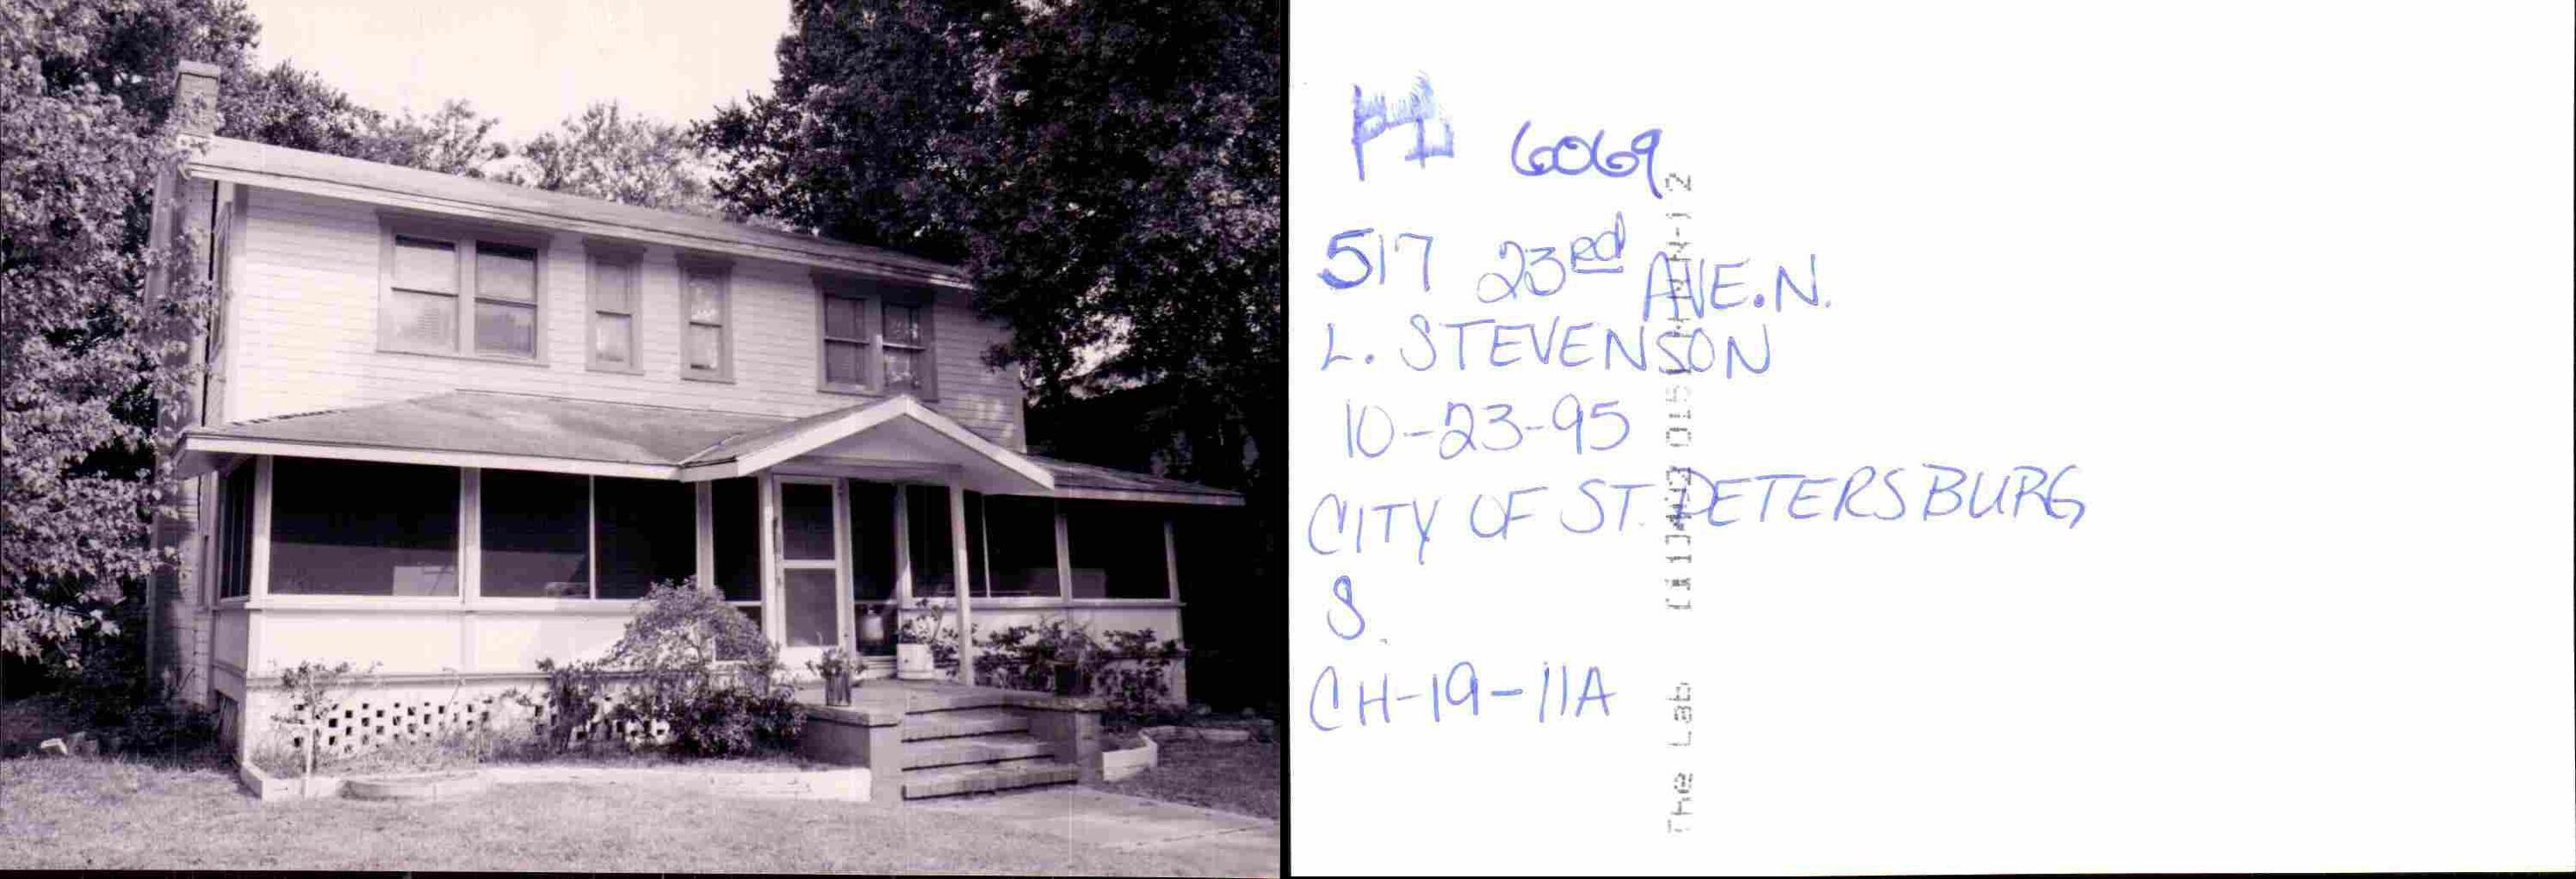 PI 6069
517 23rd AVE. N.
L. STEVENSON
10-23-95
CITY OF ST. PETERSBURG
S.
CH-19-11A
The Lab